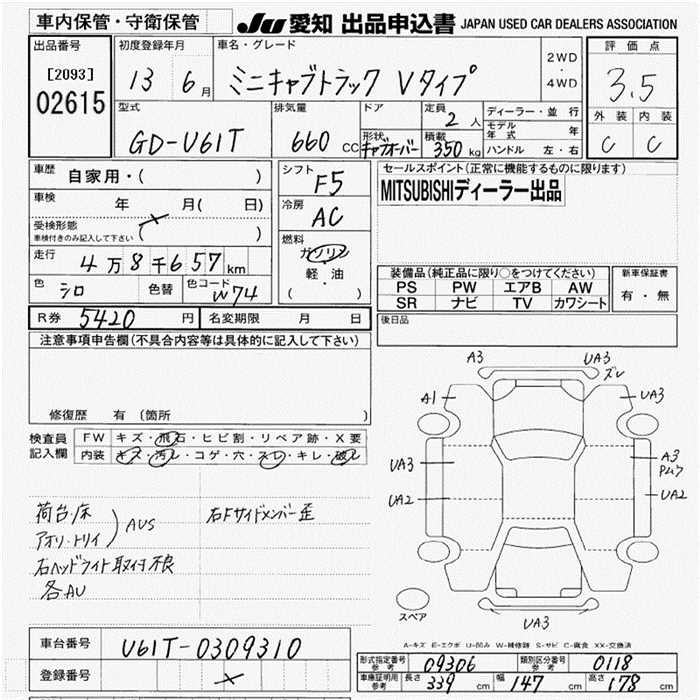 車内保管・守衛保管
JU 愛知 出品申込書 JAPAN USED CAR DEALERS ASSOCIATION
出品番号
[2093]
02615
初度登録年月
13 6月
車名・グレード
ミニキャブトラック Vタイプ
2WD
・
4WD
評価点
3.5
外装 内装
C C
型式
GD-U61T
排気量
660 CC
ドア
形状 キャブオーバー
定員 2 人
積載 350 kg
ディーラー・並行
モデル年式 年
ハンドル 左・右
車歴 自家用・( )
車検 年 月( 日)
受検形態
車検付きのみ記入して下さい ( )
走行 4万8千657km
色 シロ 色替 色コード W74
シフト F5
冷房 AC
燃料
ガソリン
軽・油
( )
セールスポイント(正常に機能するものに限ります)
MITSUBISHIディーラー出品
装備品(純正品に限り○をつけてください)
PS PW エアB AW
SR ナビ TV カワシート
新車保証書
有・無
R券 5420 円 名変期限 月 日
後日品
注意事項申告欄(不具合内容等は具体的に記入して下さい)
修復歴 有(箇所 )
検査員
記入欄
FW キズ・飛石・ヒビ割・リペア跡・X要
内装 キズ・汚レ・コゲ・穴・スレ・キレ・破レ
荷台・床
アオリ・トリイ ) AUS
右Fサイドメンバー歪
右ヘッドライト取付不良
各AU
A3 UA3
ズレ
A1 UA3
UA3 A3
UA2 UA2
スペア
UA3
A-キズ E-エクボ U-凹み W-補修跡 S-サビ C-腐食 XX-交換済
車台番号 U61T-0309310
登録番号
形式指定番号 参考 09306 類別区分番号 参考 0118
車庫証明用 参考 長さ 339 cm 幅 147 cm 高さ 178 cm